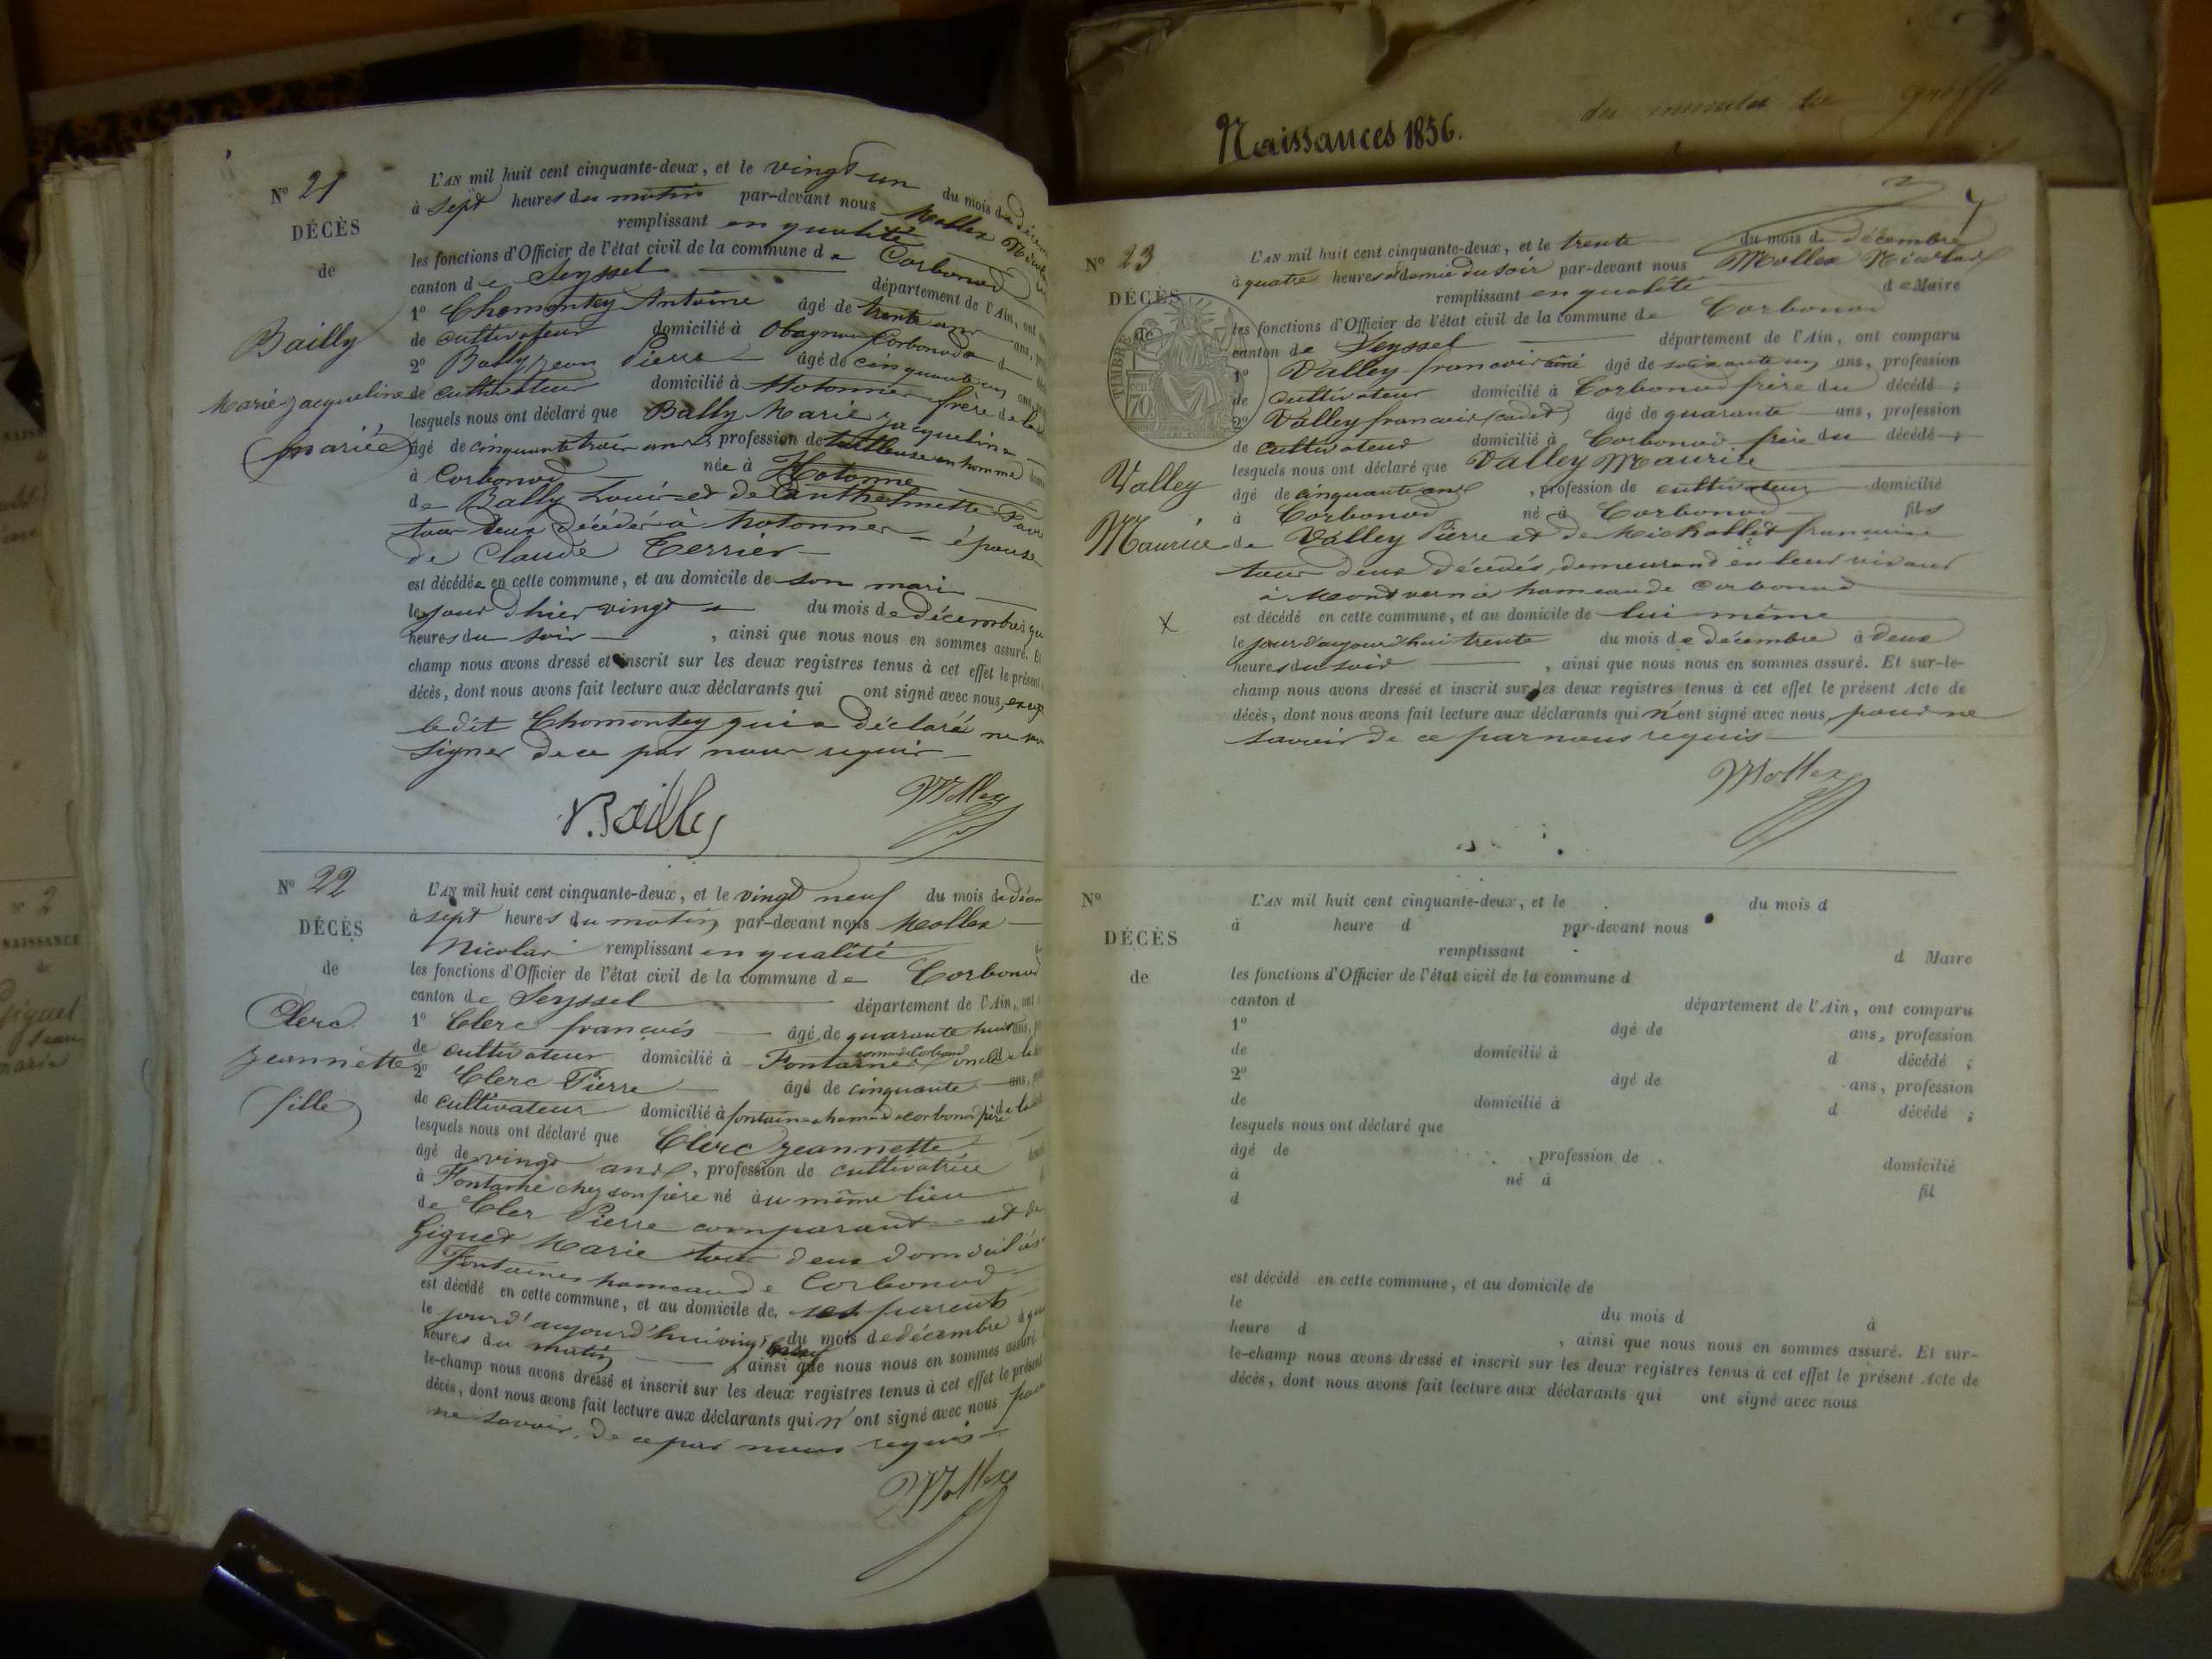 Naissances 1856.
des minutes du greffe
Nº 21
DÉCÈS
de
Bailly
Marie Jacqueline
(mariée)
L'AN mil huit cent cinquante-deux, et le vingt un du mois de
à sept heures du matin par-devant nous Mollex
remplissant en qualité
les fonctions d'Officier de l'état civil de la commune de Corbonod
canton de Seyssel département de l'Ain, ont
1º Chomontey Antoine âgé de trente ans ans,
de cultivateur domicilié à Corbonod
2º Bally jean Pierre âgé de cinquante un ans,
de cultivateur domicilié à Hotonnes frère de la
lesquels nous ont déclaré que Bally Marie jacqueline
âgé de cinquante trois ans, profession de tailleuse en homme
à Corbonod née à Hotonne
de Bally Louis et de Danthelmette
tous deux décédés à hotonnes épouse
de Claude Terrier
est décédée en cette commune, et au domicile de son mari
le jour d'hier vingt du mois de décembre à
heures du soir , ainsi que nous nous en sommes assuré. Et
champ nous avons dressé et inscrit sur les deux registres tenus à cet effet le présent
décès, dont nous avons fait lecture aux déclarants qui ont signé avec nous,
le dit Chomontey qui a déclaré ne
signer de ce par nous requis
Bailly
Mollex
Nº 22
DÉCÈS
de
Clerc
Jeannette
(fille)
L'AN mil huit cent cinquante-deux, et le vingt neuf du mois de
à sept heures du matin par-devant nous Mollex
Nicolas remplissant en qualité
les fonctions d'Officier de l'état civil de la commune de Corbonod
canton de Seyssel département de l'Ain, ont
1º Clerc françois âgé de quarante huit ans,
de cultivateur domicilié à Fontaine oncle de la
2º Clerc Pierre âgé de cinquante ans,
de cultivateur domicilié à fontaine hameau de corbonod père de la
lesquels nous ont déclaré que Clerc Jeannette
âgé de vingt ans, profession de cultivatrice
à Fontaine chez son père né au même lieu
de Cler Pierre comparant et de
Giguet Marie tous deux domiciliés
Fontaines hameau de Corbonod
est décédé en cette commune, et au domicile de ses parents
le jourd'aujourd'hui vingt neuf du mois de décembre à
heures du matin , ainsi que nous nous en sommes assuré.
le-champ nous avons dressé et inscrit sur les deux registres tenus à cet effet le présent
décès, dont nous avons fait lecture aux déclarants qui n'ont signé avec nous pour
ne savoir de ce par nous requis
Mollex
7
Nº 23
DÉCÈS
de
TIMBRE
70
Valley
Maurice
X
L'AN mil huit cent cinquante-deux, et le trente du mois de décembre
à quatre heures et demie du soir par-devant nous Mollex Nicolas
remplissant en qualité de Maire
les fonctions d'Officier de l'état civil de la commune de Corbonod
canton de Seyssel département de l'Ain, ont comparu
1º Valley françois ainé âgé de soixante un ans, profession
de cultivateur domicilié à Corbonod frère du décédé ;
2º Valley françois (cadet) âgé de quarante ans, profession
de cultivateur domicilié à Corbonod frère du décédé ;
lesquels nous ont déclaré que Valley Maurice
âgé de cinquante ans , profession de cultivateur domicilié
à Corbonod né à Corbonod fils
de Valley Pierre et de Michallet françoise
tous deux décédés demeurand en leur vivant
à hameau de Corbonod
est décédé en cette commune, et au domicile de lui même
le jour d'aujourd'hui trente du mois de décembre à deux
heures du soir , ainsi que nous nous en sommes assuré. Et sur-le-
champ nous avons dressé et inscrit sur les deux registres tenus à cet effet le présent Acte de
décès, dont nous avons fait lecture aux déclarants qui n'ont signé avec nous, pour ne
savoir de ce par nous requis
Mollex
Nº
DÉCÈS
de
L'AN mil huit cent cinquante-deux, et le du mois d
à heure d par-devant nous
remplissant d Maire
les fonctions d'Officier de l'état civil de la commune d
canton d département de l'Ain, ont comparu
1º âgé de ans, profession
de domicilié à d décédé ;
2º âgé de ans, profession
de domicilié à d décédé ;
lesquels nous ont déclaré que
âgé de , profession de domicilié
à né à fil
d
est décédé en cette commune, et au domicile de
le du mois d à
heure d , ainsi que nous nous en sommes assuré. Et sur-
le-champ nous avons dressé et inscrit sur les deux registres tenus à cet effet le présent Acte de
décès, dont nous avons fait lecture aux déclarants qui ont signé avec nous